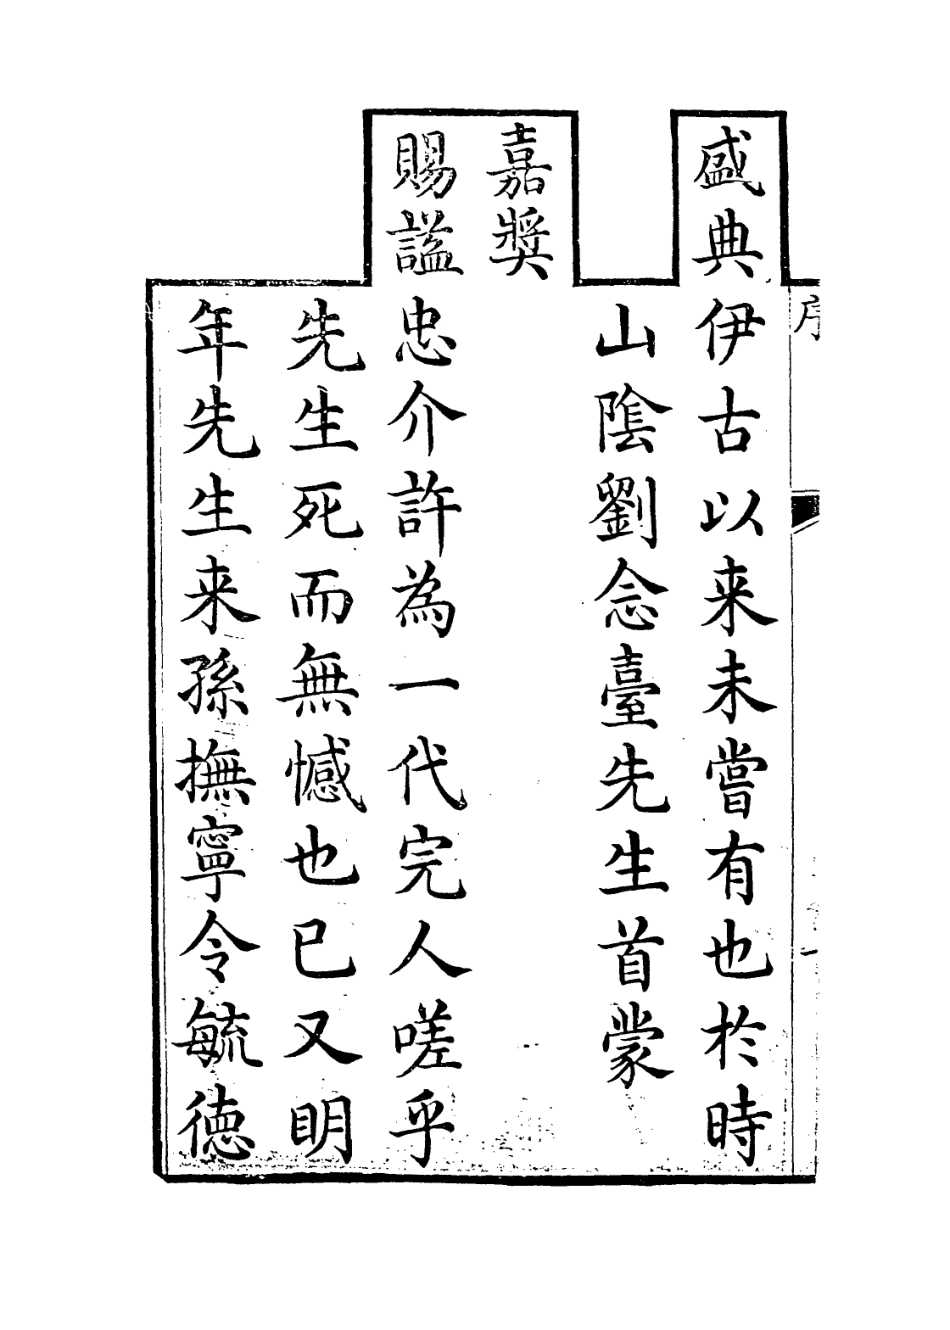 序
一
盛典伊古以来未嘗有也於時
山陰劉念臺先生首蒙
嘉奬
賜諡忠介許為一代完人嗟乎
先生死而無憾也已又明
年先生来孫撫寧令毓徳